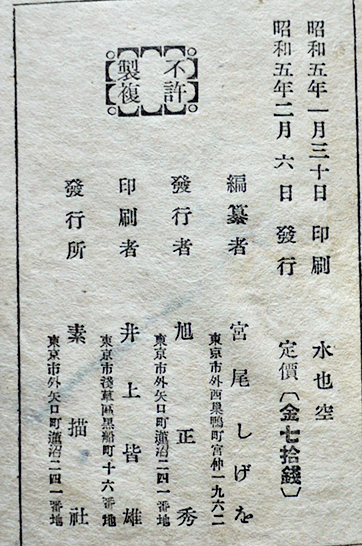 昭和五年一月三十日 印刷 水也空
昭和五年二月六日 發行 定價〔金七拾錢〕
不許
複製
編纂者 宮尾しげを
東京市外西巢鴨町宮仲一九六二
發行者 旭正秀
東京市外矢口町蓮沼二四一番地
印刷者 井上皆雄
東京市淺草區黑船町十六番地
發行所 素描社
東京市外矢口町蓮沼二四一番地